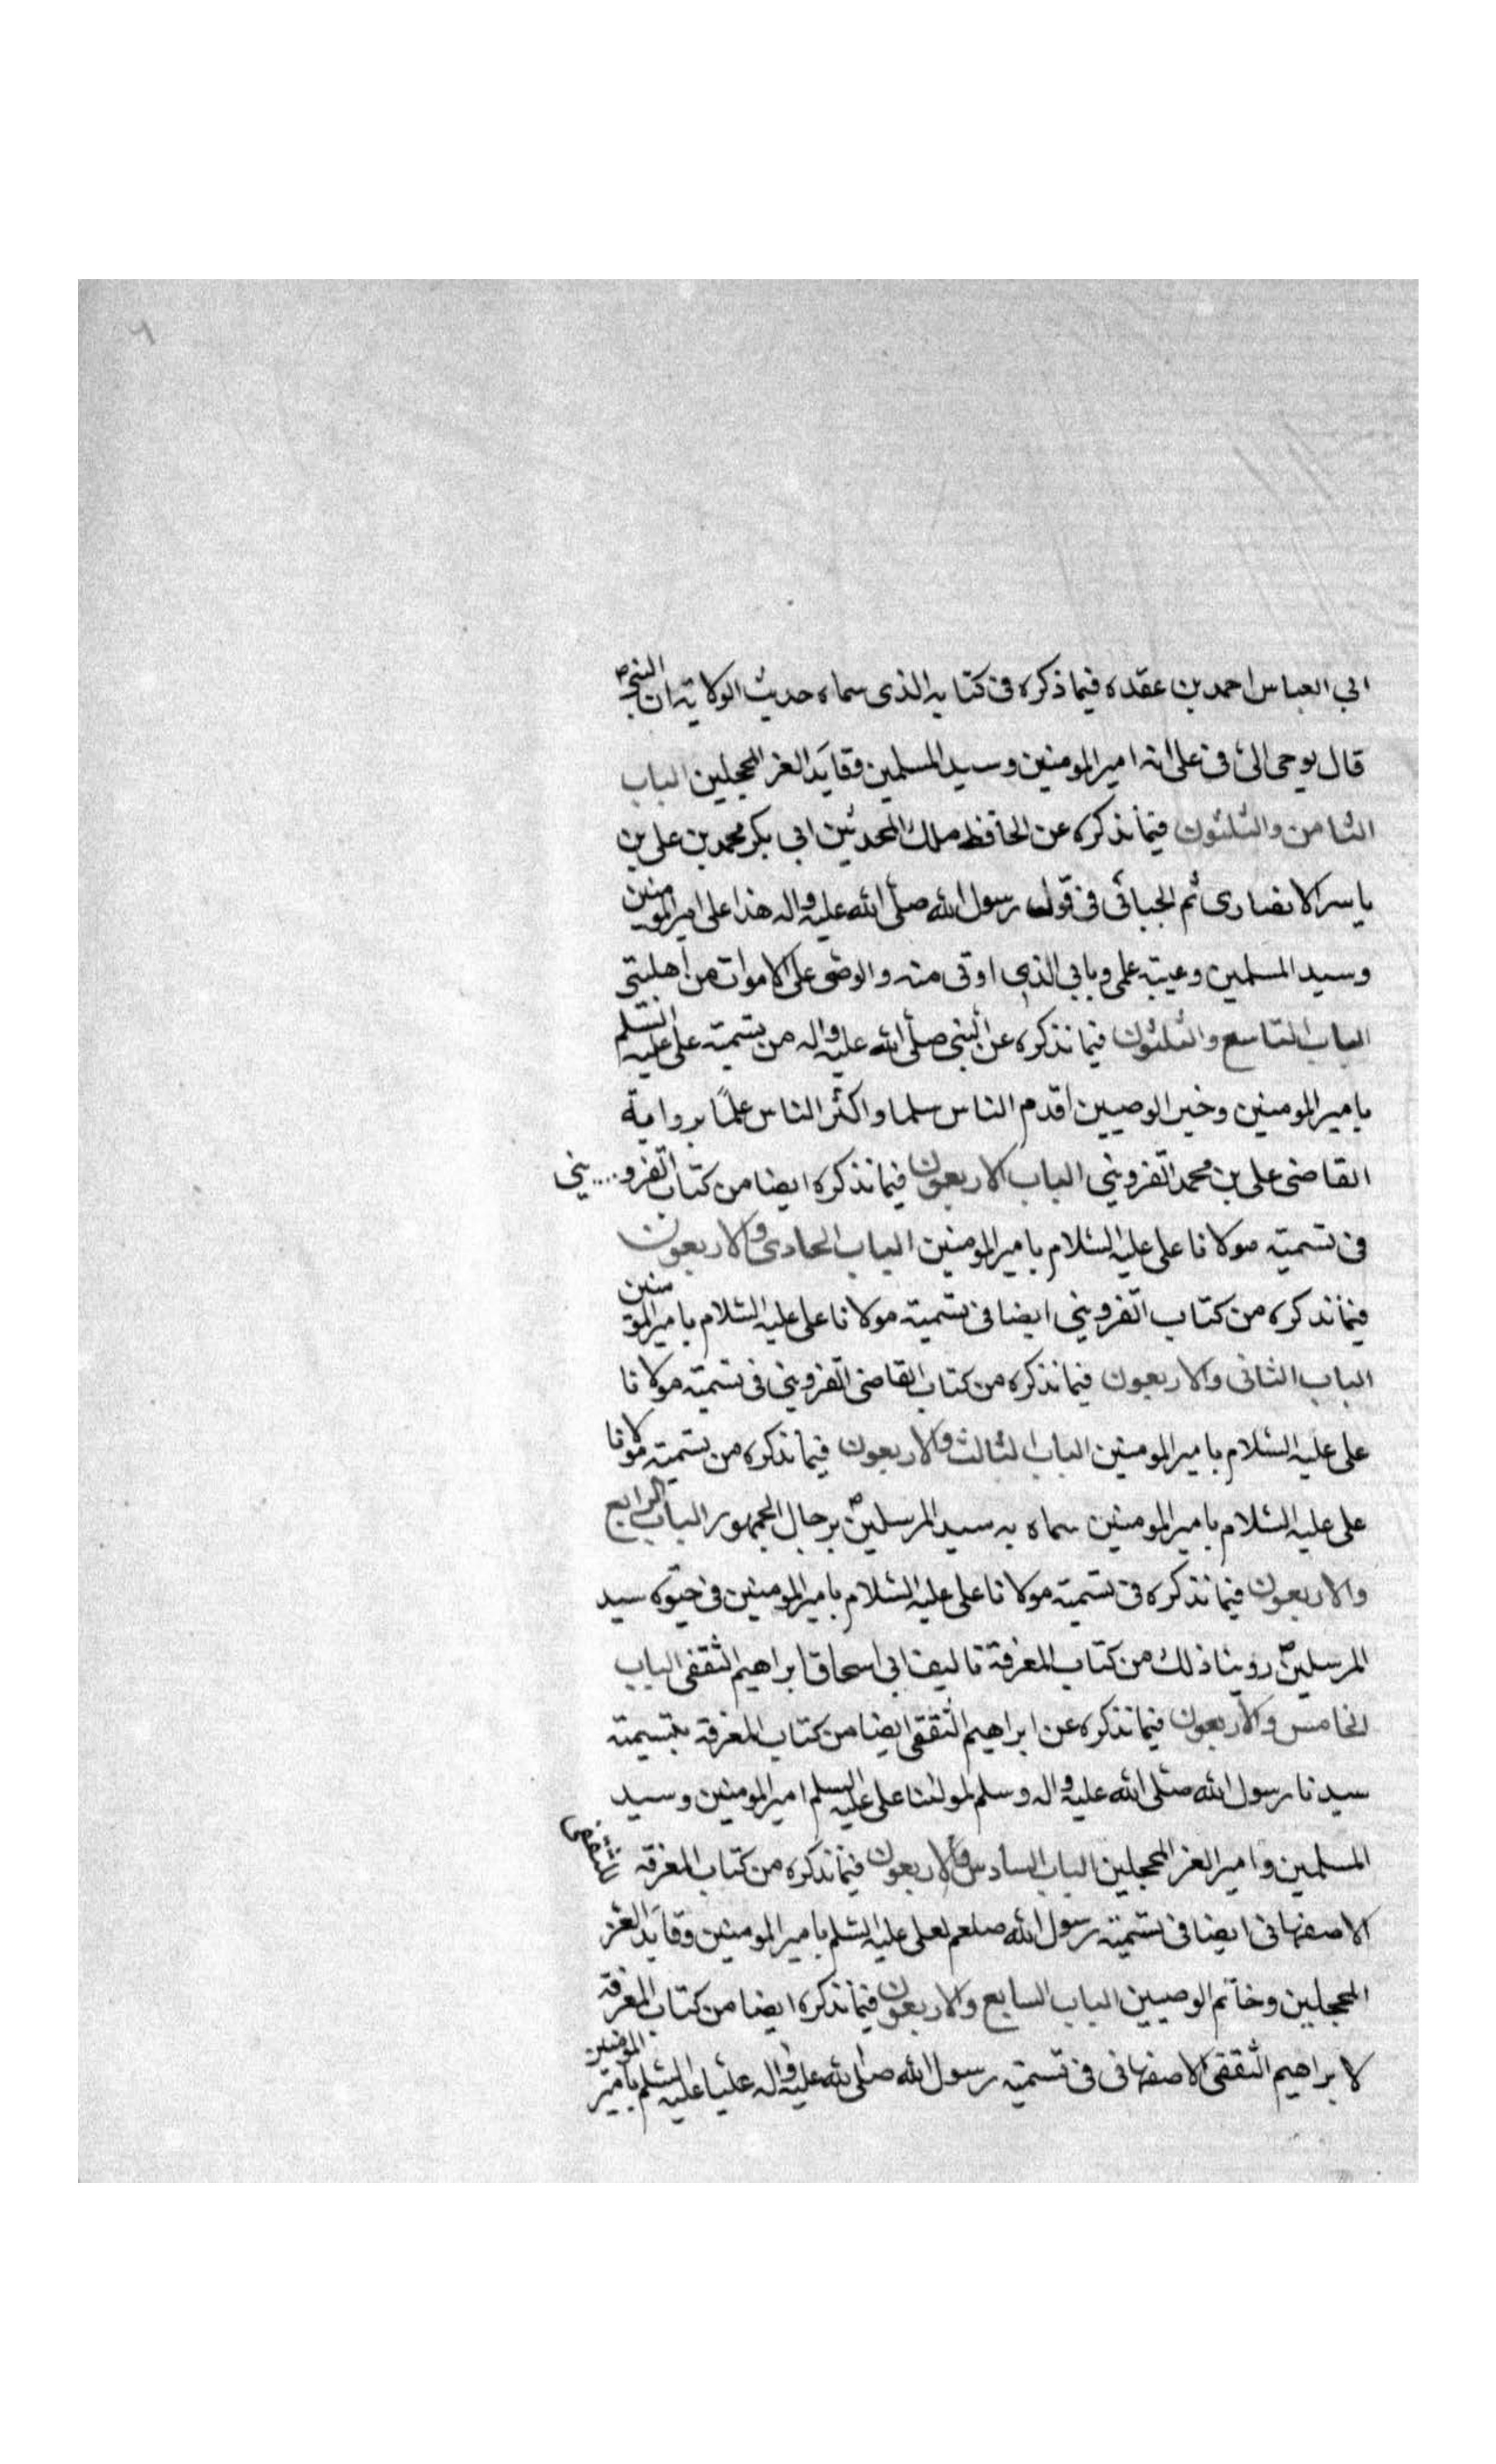 ابي العباس احمد بن عقده فيما ذكره في كتابه الذى سماه حديث الولاية ان النبي ص
قال يوحى الىّ في على انه امير المومنين وسيد المسلمين وقايد الغر المحجلين الباب
الثامن والثلثون فيما نذكره عن الحافظ ملك المحدثين ابي بكر محمد بن على بن
ياسر الانصارى ثم الجبائى في قول رسول الله صلى الله عليه واله هذا على امير المومنين
وسيد المسلمين وعيبة علمى وبابي الذى اوتى منه والوصى على الاموات من اهلبيتى
الباب التاسع والثلثون فيما نذكره عن النبي صلى الله عليه واله من تسمية على عليه السلم
بامير المومنين وخير الوصيين اقدم الناس سلما واكثر الناس علمًا برواية
القاضى على بن محمد القزويني الباب الاربعون فيما نذكره ايضا من كتاب القزو....يني
في تسمية مولانا على عليه السلام بامير المومنين الباب الحادى والاربعون
فيما نذكره من كتاب القزويني ايضا في تسمية مولانا على عليه السلام بامير المومنين
الباب الثانى والاربعون فيما نذكره من كتاب القاضى القزويني في تسمية مولانا
على عليه السلام بامير المومنين الباب الثالث والاربعون فيما نذكره من تسمية مولانا
على عليه السلام بامير المومنين سماه به سيد المرسلين ص برجال الجمهور الباب الرابع
والاربعون فيما نذكره في تسمية مولانا على عليه السلام بامير المومنين في حيوة سيد
المرسلين ص روينا ذلك من كتاب المعرفة تاليف ابي اسحاق ابراهيم الثقفى الباب
الخامس والاربعون فيما نذكره عن ابراهيم الثقفى ايضا من كتاب المعرفة بتسمية
سيدنا رسول الله صلى الله عليه واله وسلم لمولنا على عليه السلم امير المومنين وسيد
المسلمين وامير الغر المحجلين الباب السادس والاربعون فيما نذكره من كتاب المعرفة للثقفى
الاصفهانى ايضا في تسمية رسول الله صلعم لعلى عليه السلم بامير المومنين وقايد الغر
المحجلين وخاتم الوصيين الباب السابع والاربعون فيما نذكره ايضا من كتاب المعرفة
لابراهيم الثقفى الاصفهانى في تسمية رسول الله صلى الله عليه واله عليا عليه السلم بامير المومنين